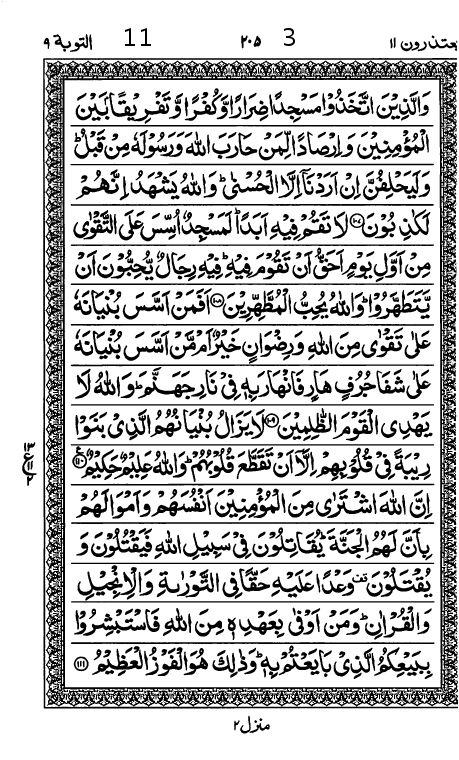 یعتذرون ۱۱ 3 ۲۰۵ 11 التوبة ۹
وَالَّذِيْنَ اتَّخَذُوْا مَسْجِدًا ضِرَارًا وَّكُفْرًا وَّتَفْرِيْقًۢا بَيْنَ
الْمُؤْمِنِيْنَ وَاِرْصَادًا لِّمَنْ حَارَبَ اللّٰهَ وَرَسُوْلَهٗ مِنْ قَبْلُ ؕ
وَلَيَحْلِفُنَّ اِنْ اَرَدْنَاۤ اِلَّا الْحُسْنٰى ؕ وَاللّٰهُ يَشْهَدُ اِنَّهُمْ
لَكٰذِبُوْنَ ﴿۱۰۷﴾ لَا تَقُمْ فِيْهِ اَبَدًا ؕ لَمَسْجِدٌ اُسِّسَ عَلَى التَّقْوٰى
مِنْ اَوَّلِ يَوْمٍ اَحَقُّ اَنْ تَقُوْمَ فِيْهِ ؕ فِيْهِ رِجَالٌ يُّحِبُّوْنَ اَنْ
يَّتَطَهَّرُوْا ؕ وَاللّٰهُ يُحِبُّ الْمُطَّهِّرِيْنَ ﴿۱۰۸﴾ اَفَمَنْ اَسَّسَ بُنْيَانَهٗ
عَلٰى تَقْوٰى مِنَ اللّٰهِ وَرِضْوَانٍ خَيْرٌ اَمْ مَّنْ اَسَّسَ بُنْيَانَهٗ
عَلٰى شَفَا جُرُفٍ هَارٍ فَانْهَارَ بِهٖ فِيْ نَارِ جَهَنَّمَ ؕ وَاللّٰهُ لَا
يَهْدِى الْقَوْمَ الظّٰلِمِيْنَ ﴿۱۰۹﴾ لَا يَزَالُ بُنْيَانُهُمُ الَّذِيْ بَنَوْا
رِيْبَةً فِيْ قُلُوْبِهِمْ اِلَّاۤ اَنْ تَقَطَّعَ قُلُوْبُهُمْ ؕ وَاللّٰهُ عَلِيْمٌ حَكِيْمٌ ﴿۱۱۰﴾
اِنَّ اللّٰهَ اشْتَرٰى مِنَ الْمُؤْمِنِيْنَ اَنْفُسَهُمْ وَاَمْوَالَهُمْ
بِاَنَّ لَهُمُ الْجَنَّةَ ؕ يُقَاتِلُوْنَ فِيْ سَبِيْلِ اللّٰهِ فَيَقْتُلُوْنَ وَ
يُقْتَلُوْنَ وَعْدًا عَلَيْهِ حَقًّا فِى التَّوْرٰىةِ وَالْاِنْجِيْلِ
وَالْقُرْاٰنِ ؕ وَمَنْ اَوْفٰى بِعَهْدِهٖ مِنَ اللّٰهِ فَاسْتَبْشِرُوْا
بِبَيْعِكُمُ الَّذِيْ بَايَعْتُمْ بِهٖ ؕ وَذٰلِكَ هُوَ الْفَوْزُ الْعَظِيْمُ ﴿۱۱۱﴾
منزل ۲